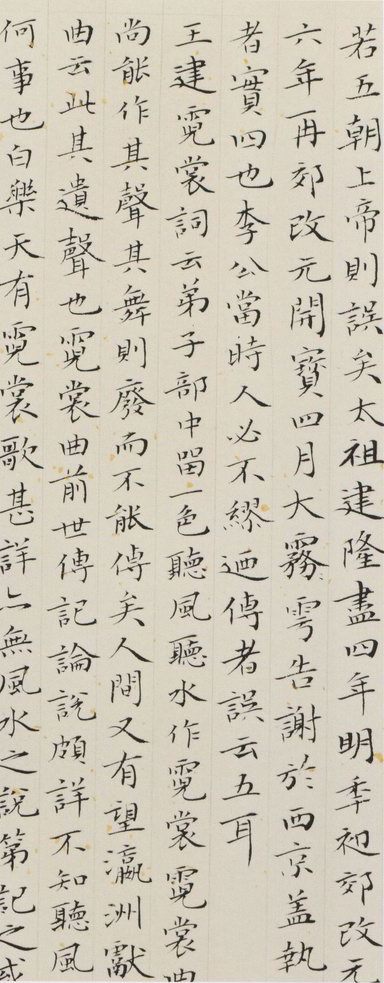 若五朝上帝則誤矣太祖建隆盡四年明年初郊改元
六年再郊改元開寶四月大霧雩告謝於西京蓋執
者實四也李公當時人必不繆迺傳者誤云五耳
王建霓裳詞云弟子部中留一色聽風聽水作霓裳霓裳曲
尚能作其聲其舞則廢而不能傳矣人間又有望瀛洲獻
曲云此其遺聲也霓裳曲前世傳記論說頗詳不知聽風
何事也白樂天有霓裳歌甚詳亦無風水之說第記之或